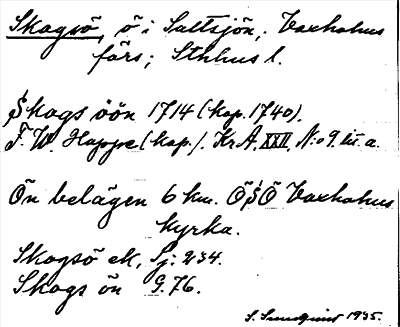 Skogsö, ö i Saltsjön, Vaxholms
förs; Sthlms l.
Skogs öön 1714 (kop. 1740).
F. W. Happe (kop.). Kr A. XXII, N:o 9 lit. a.
Ön belägen 6 km. ÖSÖ Vaxholms
kyrka.
Skogsö ek, Sj: 234.
Skogs ön G. 76.
S. Sundquist 1935.